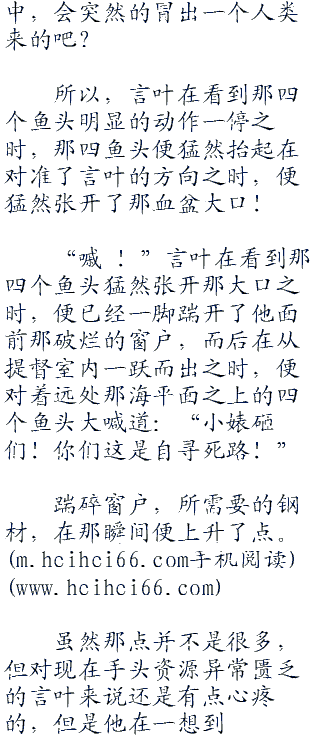 中，会突然的冒出一个人类
来的吧？
所以，言叶在看到那四
个鱼头明显的动作一停之
时，那四鱼头便猛然抬起在
对准了言叶的方向之时，便
猛然张开了那血盆大口！
“喊 ！”言叶在看到那
四个鱼头猛然张开那大口之
时，便已经一脚踹开了他面
前那破烂的窗户，而后在从
提督室内一跃而出之时，便
对着远处那海平面之上的四
个鱼头大喊道：“小婊砸
们！你们这是自寻死路！”
踹碎窗户，所需要的钢
材，在那瞬间便上升了点。
(m.hcihci66.com手机阅读)
(www.hcihci66.com)
虽然那点并不是很多，
但对现在手头资源异常匮乏
的言叶来说还是有点心疼
的，但是他在一想到